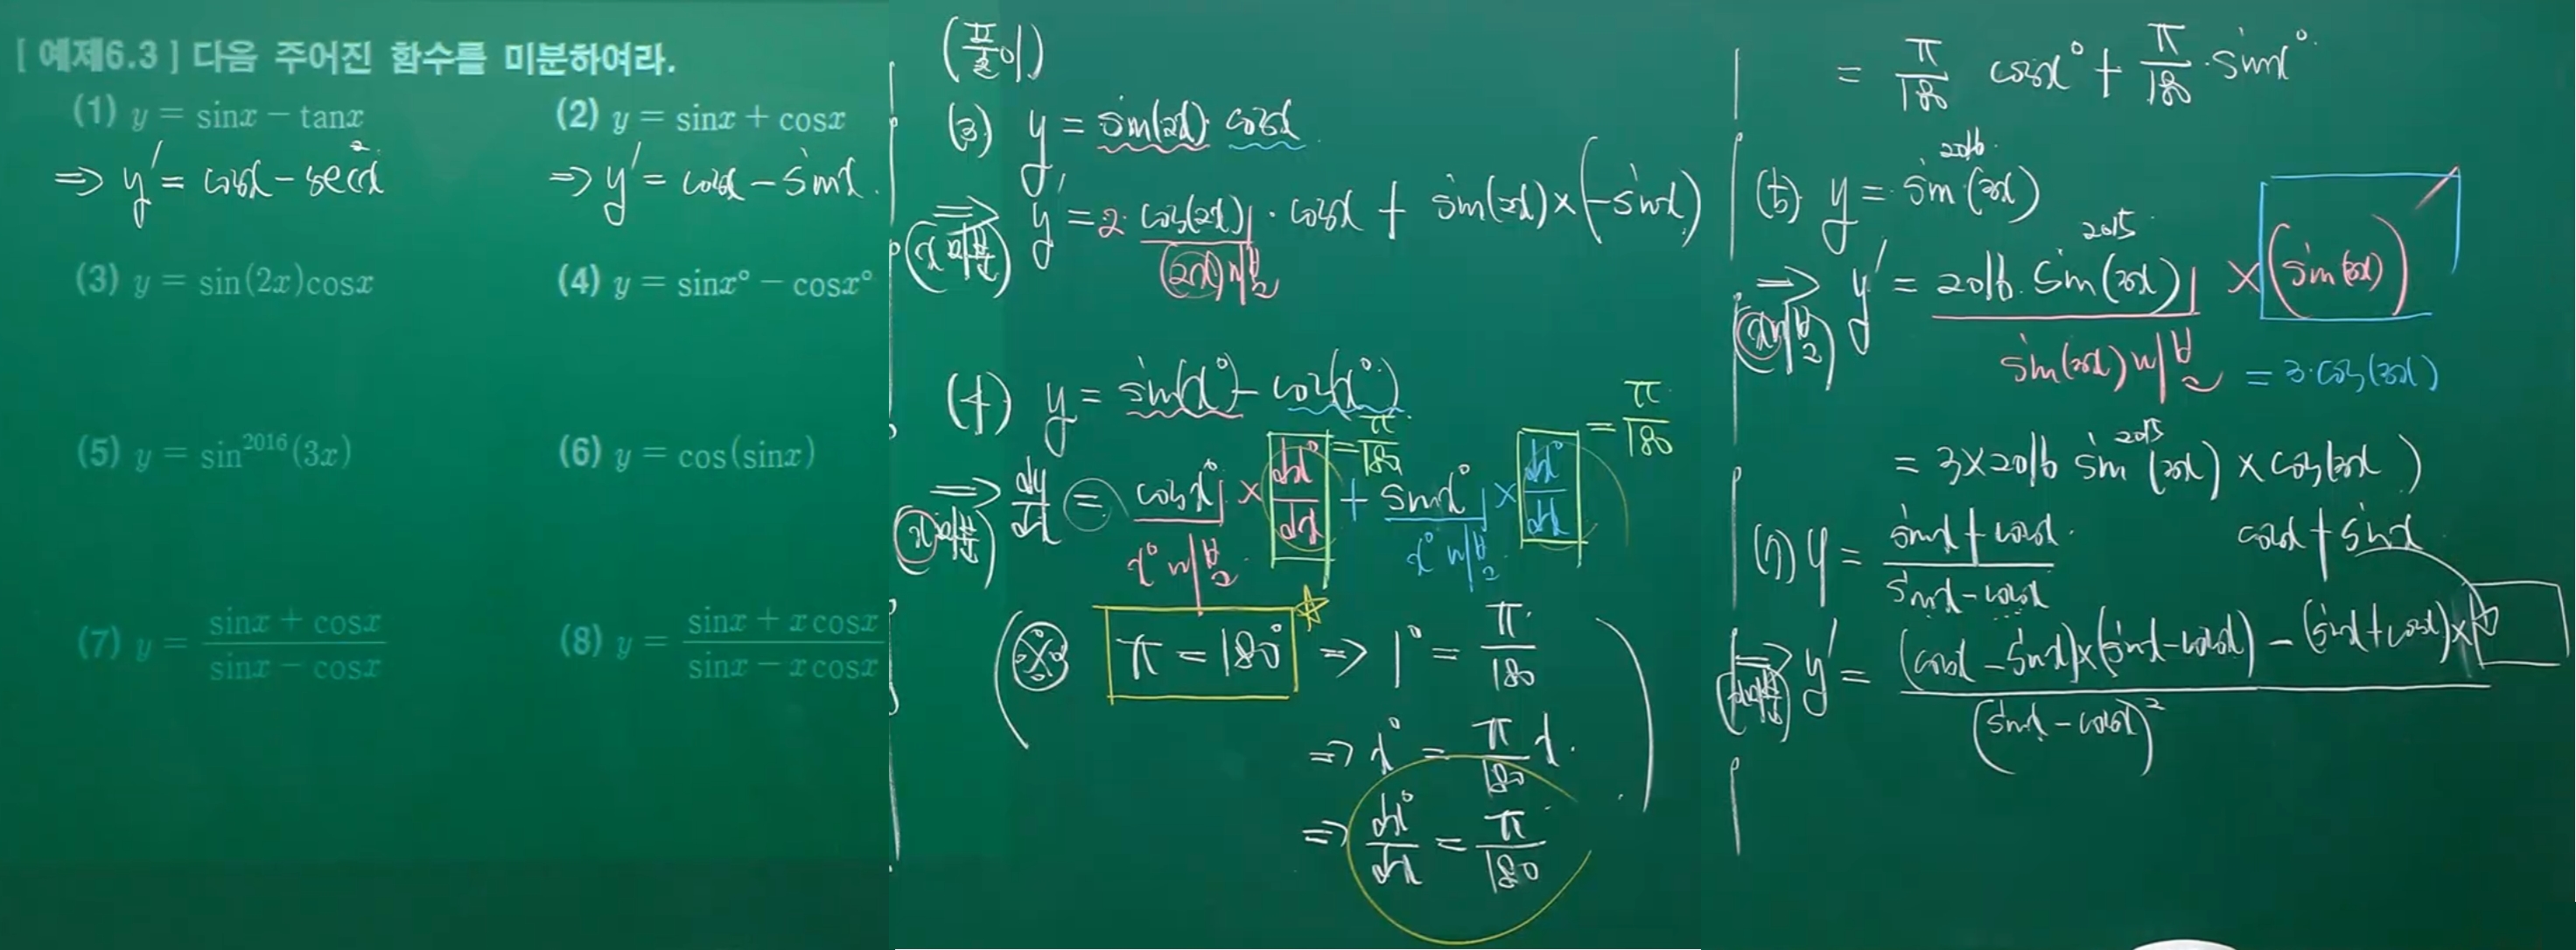 [ 예제6.3 ] 다음 주어진 함수를 미분하여라.
(1) y = sinx − tanx
⇒ y′ = cosx − sec²x
(2) y = sinx + cosx
⇒ y′ = cosx − sinx.
(3) y = sin(2x)cosx
(4) y = sinx° − cosx°
(5) y = sin²⁰¹⁶(3x)
(6) y = cos(sinx)
(7) y = (sinx + cosx)/(sinx − cosx)
(8) y = (sinx + xcosx)/(sinx − xcosx)
(풀이)
(3) y = sin(2x) · cosx
⇒ y′ = 2 · cos(2x) · cosx + sin(2x) × (−sinx)
(x미분)
(2x)미분
(4) y = sin(x°) − cos(x°)
⇒ dy/dx = cosx° × dx°/dx + sinx° × dx°/dx
(x미분)
= π/180
= π/180
x°미분
x°미분
(※ π = 180° ⇒ 1° = π/180
⇒ x° = π/180 x.
⇒ dx°/dx = π/180 )
= π/180 cosx° + π/180 · sinx°
(5) y = sin²⁰¹⁶(3x)
⇒ y′ = 2016 · sin²⁰¹⁵(3x) × (sin(3x))′
(x미분)
sin(3x)미분
= 3 · cos(3x)
= 3×2016 sin²⁰¹⁵(3x) × cos(3x)
(7) y = (sinx + cosx)/(sinx − cosx)
cosx + sinx
⇒ y′ = ((cosx − sinx)×(sinx − cosx) − (sinx + cosx)×)/(sinx − cosx)²
(x미분)